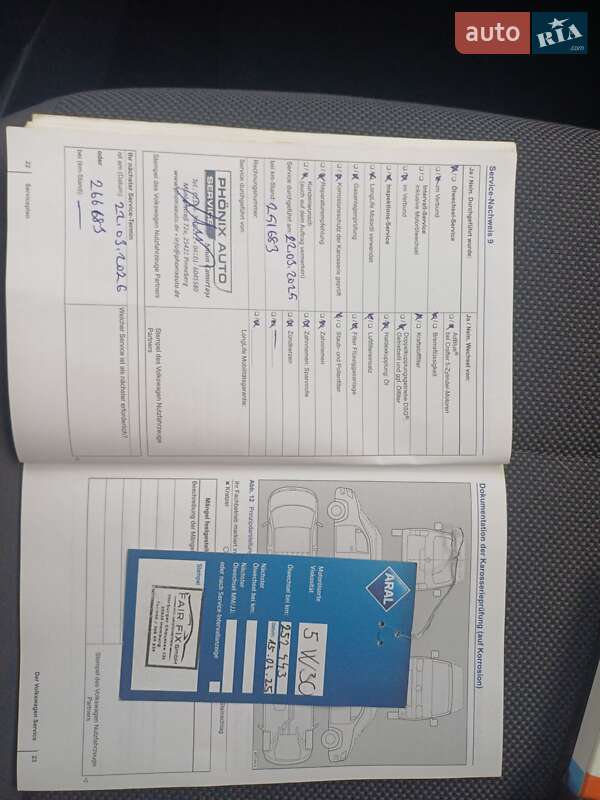 auto RIA.com
Service-Nachweis 9
Ja / Nein. Durchgeführt wurde:
Ölwechsel-Service
im Verbund
Intervall-Service
inklusive Motorölwechsel
im Verbund
Inspektions-Service
LongLife Motoröl verwendet
Gasanlagenprüfung
Korrosionsschutz der Karosserie geprüft
Reparaturempfehlung
Kundenwunsch
(auch auf dem Auftrag vermerken)
Service durchgeführt am: 22.03.2025
bei km-Stand: 251683
Rechnungsnummer:
Service durchgeführt von:
PHÖNIX AUTO
SERVICE
25421 Pinneberg
Stempel des Volkswagen Nutzfahrzeuge Partners
Ihr nächster Service-Termin
ist am (Datum): 22.03.2026
oder
bei (km-Stand): 266683
22
Serviceplan
Ja / Nein. Wechsel von:
AdBlue®
bei Crafter 5-Zylinder Motoren
Bremsflüssigkeit
Kraftstofffilter
Doppelkupplungsgetriebe DSG®:
Getriebeöl und ggf. Ölfilter
Haldexkupplung: Öl
Luftfiltereinsatz
Filter Flüssiggasanlage
Staub- und Pollenfilter
Zahnriemen
Zahnriemen: Spannrolle
Zündkerzen
LongLife Mobilitätsgarantie:
Stempel des Volkswagen Nutzfahrzeuge
Partners
Welcher Service ist als nächster erforderlich?
Dokumentation der Karosserieprüfung (auf Korrosion)
Abb. 12 Prinzipdarstellung
Ihr Fachbetrieb markiert
Kratzer
Mängel festgestellt
Beschreibung der Mängel
Stempel des Volkswagen Nutzfahrzeuge
Partners
Der Volkswagen Service
23
ARAL
Motorölsorte
Viskosität
5W/30
Ölwechsel bei km:
252 443
Datum:
15.04.25
Nächster
Ölwechsel bei km:
Nächster
Ölwechsel MM/JJ:
oder nach Service-Intervallanzeige
Stempel
FAIR FIX GmbH